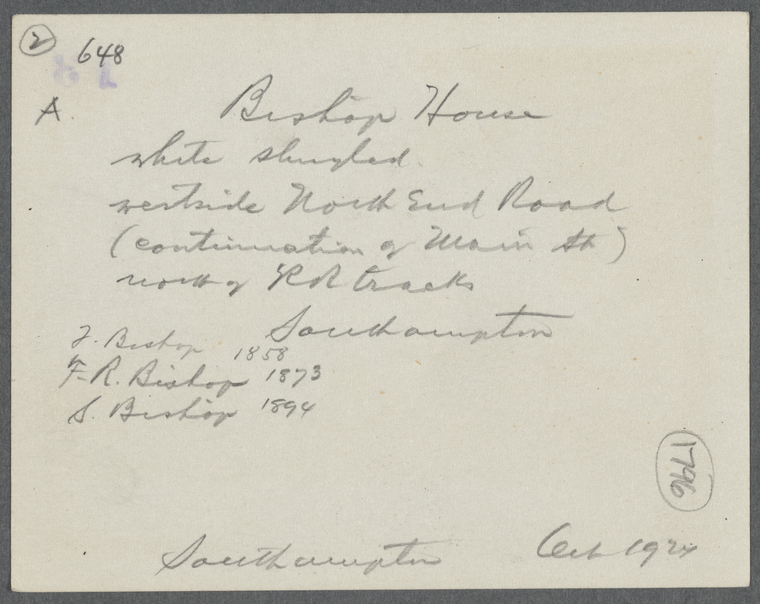 2 648
A.
Bishop House
white shingled
westside North End Road
(continuation of Main St)
north of RR tracks
Southampton
J. Bishop 1858
F. R. Bishop 1873
S. Bishop 1894
1796
Southampton Oct